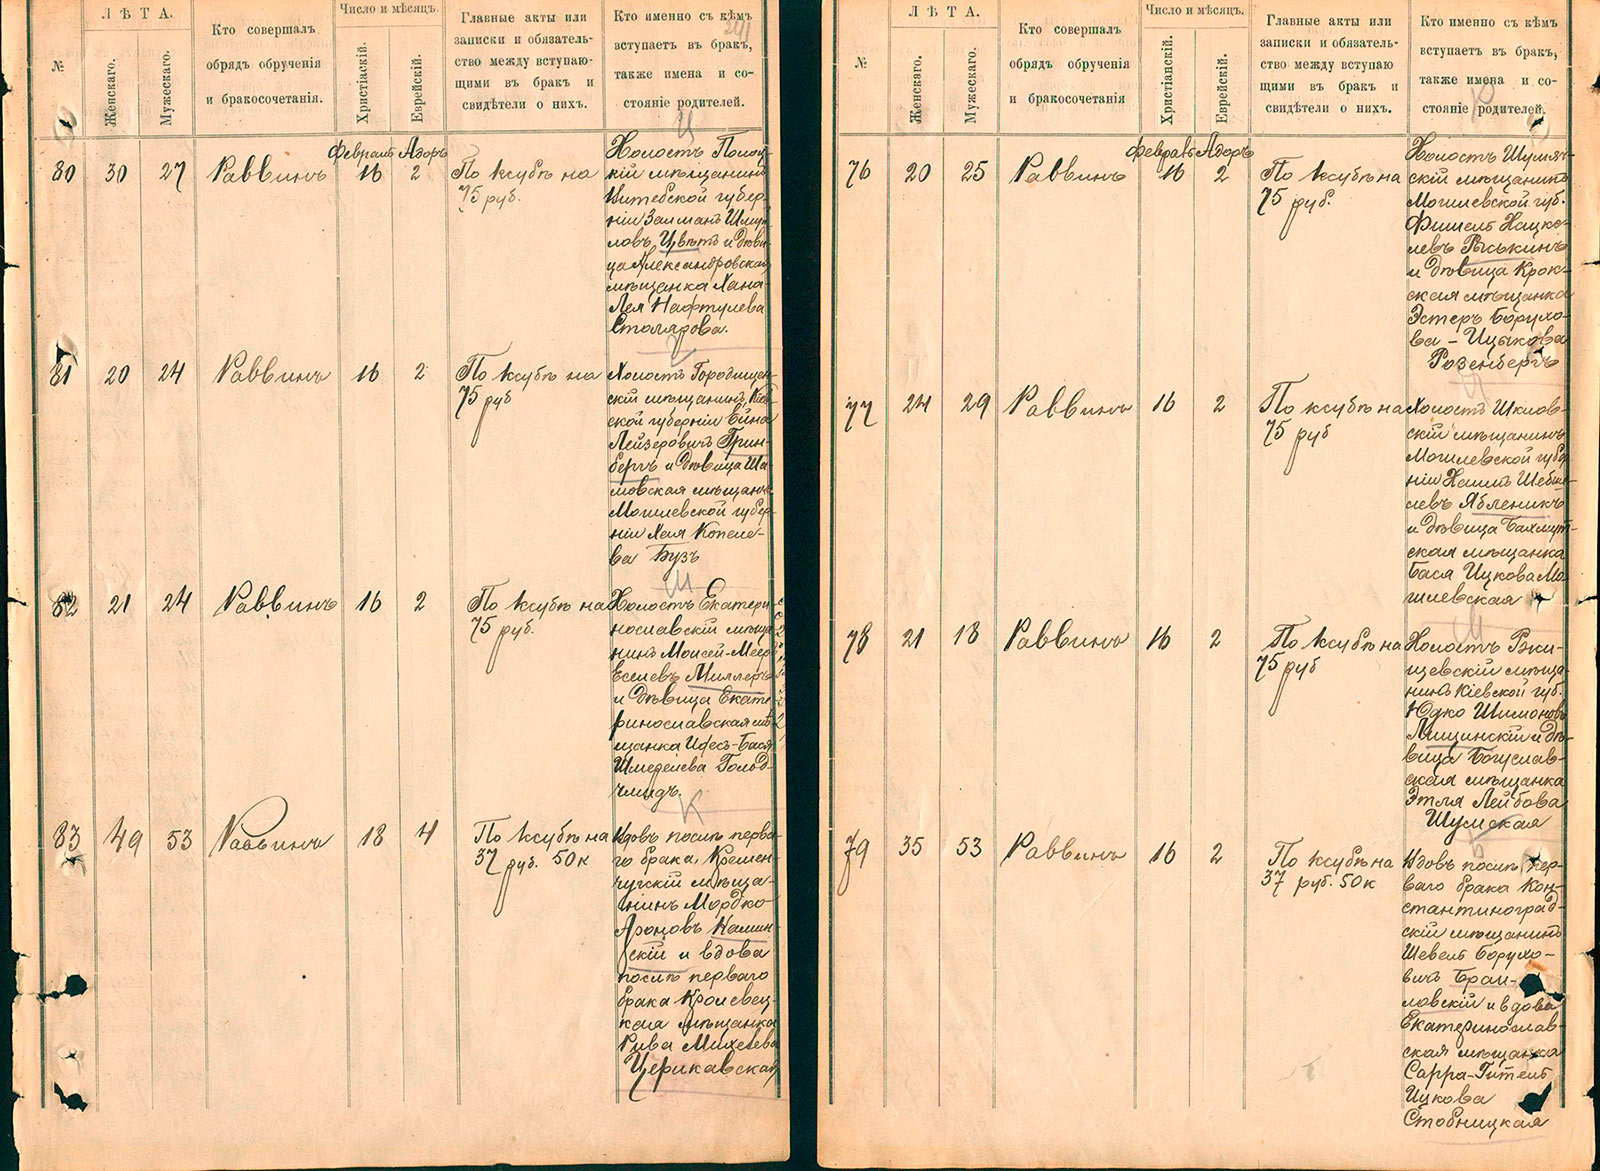 ЛѢТА.
Число и мѣсяцъ.
№
Женскаго.
Мужескаго.
Кто совершалъ
обрядъ обрученія
и бракосочетанія.
Христіаскій.
Еврейскій.
Главные акты или
записки и обязатель-
ство между вступаю-
щими въ бракъ и
свидѣтели о нихъ.
Кто именно съ кѣмъ
вступаетъ въ бракъ,
также имена и со-
стояніе родителей.
Февраль Адоръ
80 30 27 Раввинъ 16 2
По ксубѣ на
75 руб.
Холостъ Полоц-
кій мѣщанинъ
Витебской губер-
ніи Залманъ Шму-
ловъ Цвѣтъ и дѣви-
ца Александровская
мѣщанка Хана
Лея Нафтулева
Столярова.
81 20 24 Раввинъ 16 2
По ксубѣ на
75 руб
Холостъ Городищен-
скій мѣщанинъ Кіев-
ской губерніи Ейна
Лейзеровичъ Грин-
бергъ и дѣвица Ша-
мовская мѣщанка
Могилевской губер-
ніи Хая Копеле-
ва Бузъ
82 21 24 Раввинъ 16 2
По ксубѣ на
75 руб.
Холостъ Екатери-
нославскій мѣща-
нинъ Моисей-Меер
Еселевъ Миллеръ
и дѣвица Екате-
ринославская мѣ-
щанка Идесъ-Бася
Шмерелева Гольд-
шмидъ.
83 49 53 Раввинъ 18 4
По ксубѣ на
37 руб. 50 к
Вдовъ послѣ перва-
го брака Кремен-
чугскій мѣща-
нинъ Мордко
Ароновъ Камин-
скій и вдова
послѣ перваго
брака Кролевец-
кая мѣщанка
Рива Михелева
Церикавская
ЛѢТА.
Число и мѣсяцъ.
№
Женскаго.
Мужескаго.
Кто совершалъ
обрядъ обрученія
и бракосочетанія
Христіанскій.
Еврейскій.
Главные акты или
записки и обязатель-
ство между вступаю
щими въ бракъ и
свидѣтели о нихъ.
Кто именно съ кѣмъ
вступаетъ въ бракъ,
также имена и со-
стояніе родителей.
Февраль Адоръ
76 20 25 Раввинъ 16 2
По ксубѣ на
75 руб.
Холостъ Шумяч-
скій мѣщанинъ
Могилевской губ.
Фишель Хацко-
левъ Рыськинъ
и дѣвица Крок-
ская мѣщанка
Эстеръ Борухо-
ва-Ицыкова
Розенбергъ
77 24 29 Раввинъ 16 2
По ксубѣ на
75 руб
Холостъ Шклов-
скій мѣщанинъ
Могилевской губер
ніи Хаимъ Шебше-
левъ Ябленикъ
и дѣвица Бахмут-
ская мѣщанка
Бася Ицкова Мо-
гилевская
78 21 18 Раввинъ 16 2
По ксубѣ на
75 руб
Холостъ Ржи-
щевскій мѣща-
нинъ Кіевской губ.
Юдко Шимоновъ
Лищинскій и дѣ-
вица Богуслав-
ская мѣщанка
Этля Лейбова
Шумская
79 35 53 Раввинъ 16 2
По ксубѣ на
37 руб. 50 к
Вдовъ послѣ пер-
ваго брака Кон-
стантиноград-
скій мѣщанинъ
Шевель Борухо-
вичъ Браи-
ловскій и вдова
Екатеринослав-
ская мѣщанка
Сарра-Гитель
Ицкова
Стобницкая